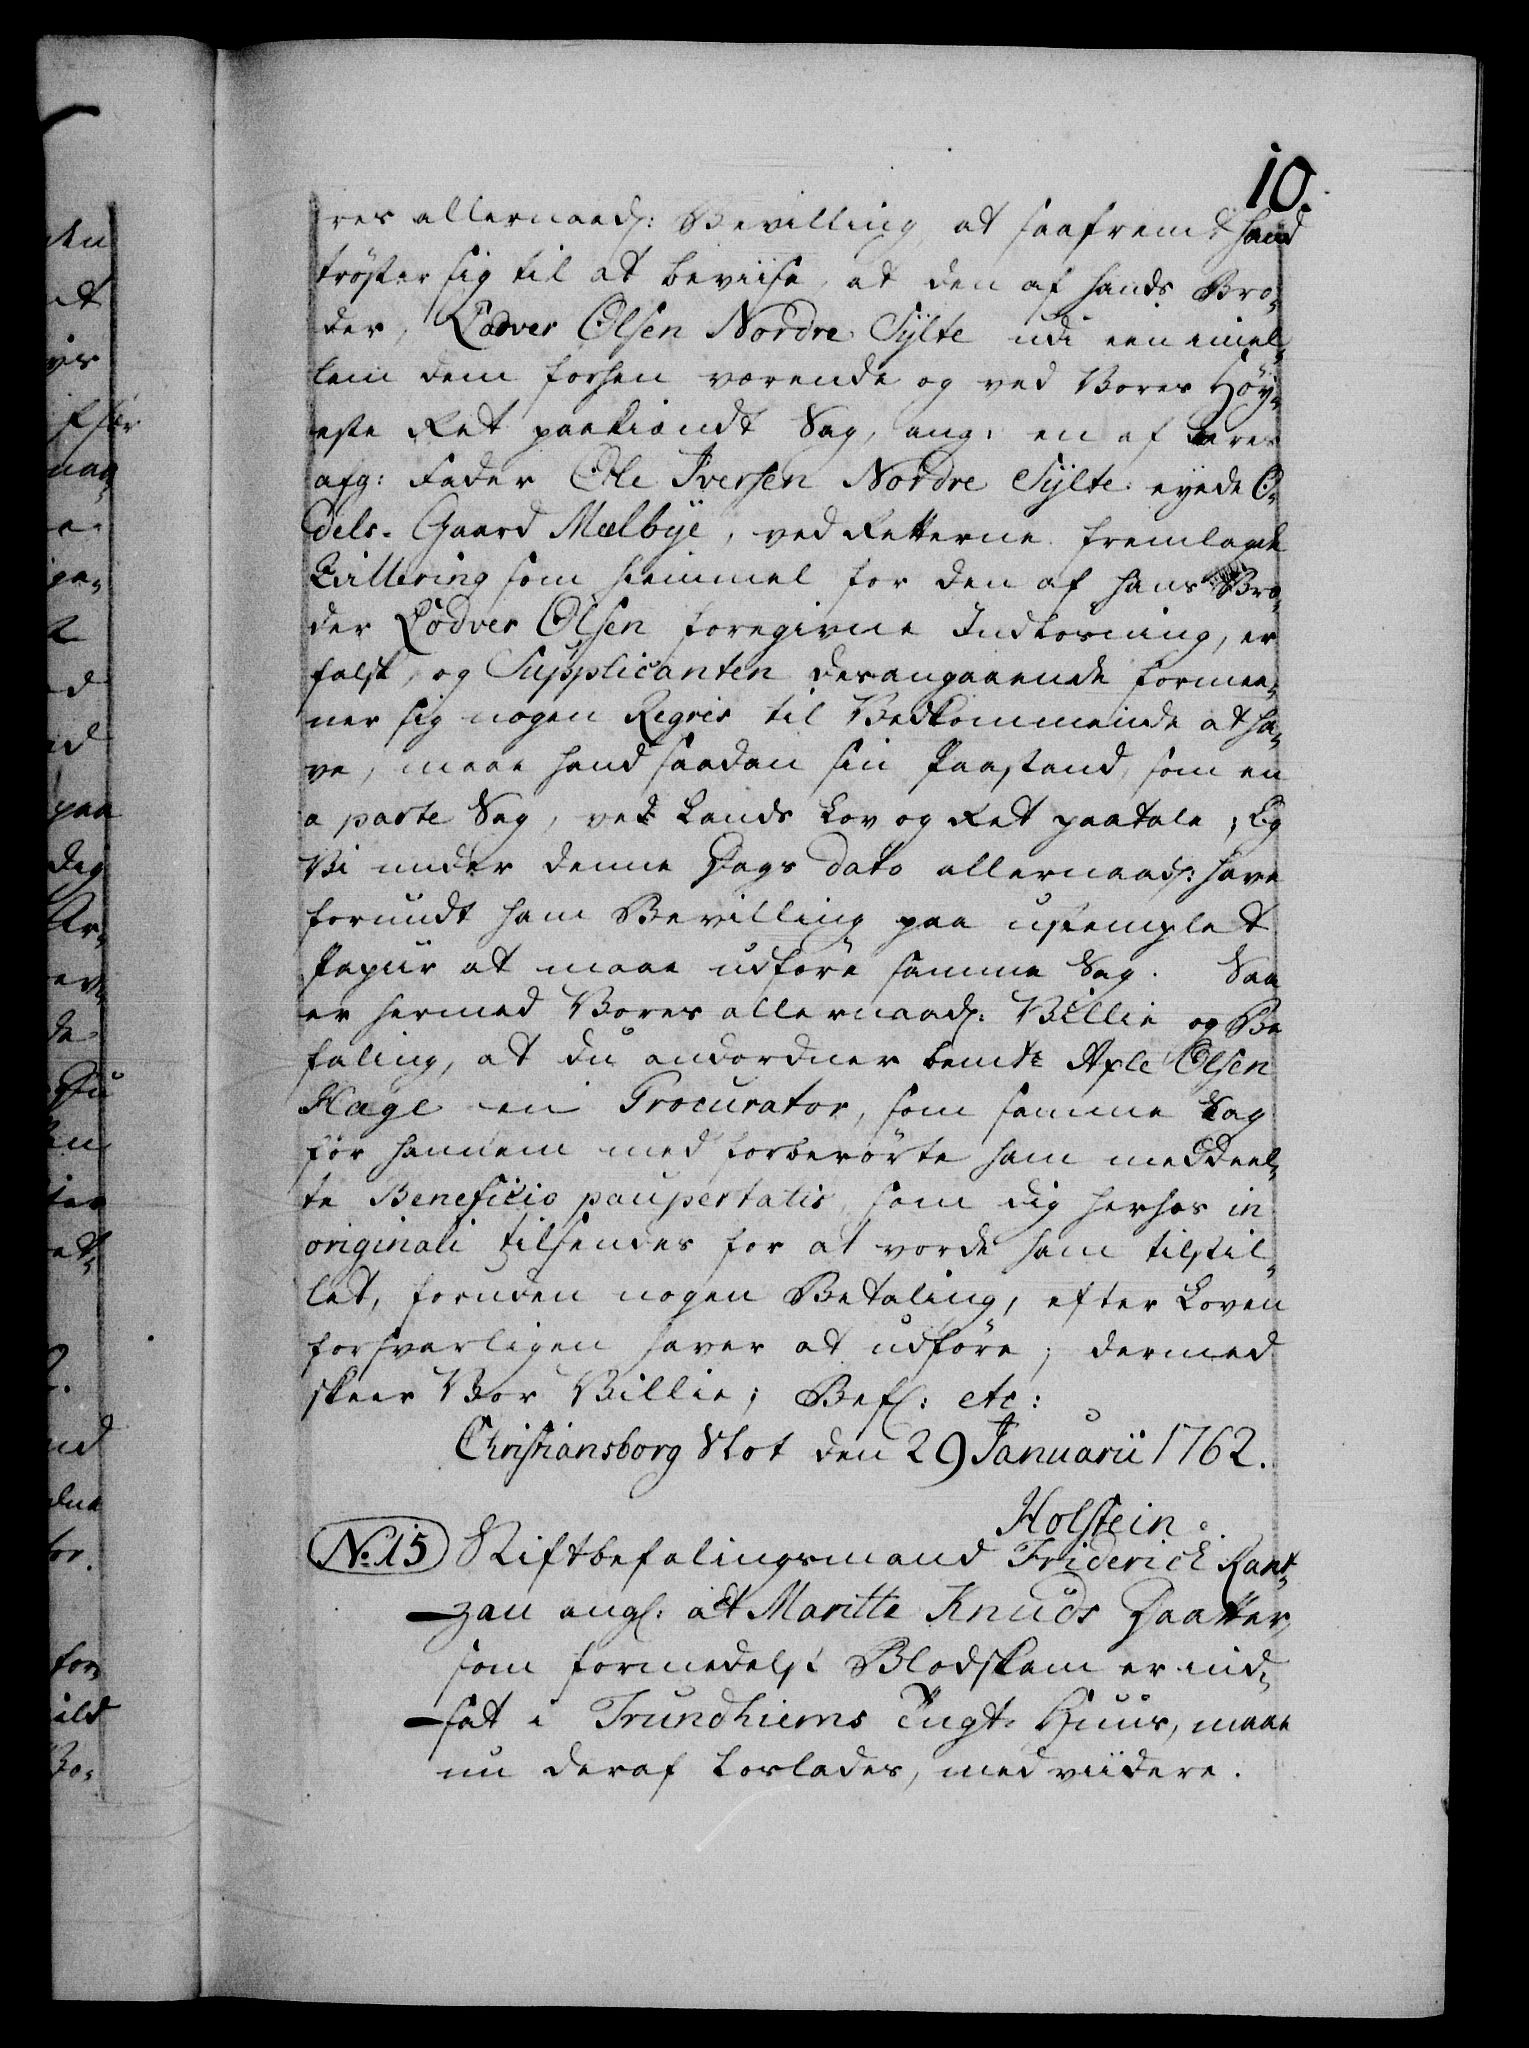 10.
res allernaad: Bevilling, at saafremt hand
trøster sig til at beviise, at den af hands Bro-
der, Lødver Olsen Nordre Sÿlte udi een imel-
lem dem forhen værende og ved Vores Höÿ-
este Ret paakiændt Sag, ang: en af deres
afg: Fader Ole Iversen Nordre Sÿlte eyede O-
dels-Gaard Mælbÿe, ved Retterne fremlagde
Qvittering som hiemmel for den af hans Bro-
der Lödver Olsen foregivne Indlosning, er
falsk, og Supplicanten desangaaende formee-
ner sig nogen Regres til Vedkommende at ha-
ve, maae hand saadan sin Paastand, som en
a parte Sag, ved Lands Lov og Ret paatale; Og
Vi under denne Dags dato allernaad: have
forundt ham Bevilling paa ustemplet
Papiir at maae udföre samme Sag. Saa
er hermed Vores allernaad: Villie og Be
faling, at du andordner bemte Axle Olsen
Hage en Procurator, som samme Sag
for hannem med forberörte ham meddeel-
te Beneficio paupertatis, som dig herhos in
originali tilsendes for at vorde ham tilstil-
let, foruden nogen Betaling, efter Loven
forsvarligen haver at udföre; dermed
skeer Vor Villie; Bef: etc:
Christiansborg Slot den 29 Januarii 1762.
Holstein
No. 15 Stiftbefalingsmand Friderich Rant-
zau ang: at Maritte Knuds Daatter,
som formedelst Blodskam er ind-
sat i Trundhiems Tugt-Huus, maae
nu deraf loslades, med viidere.